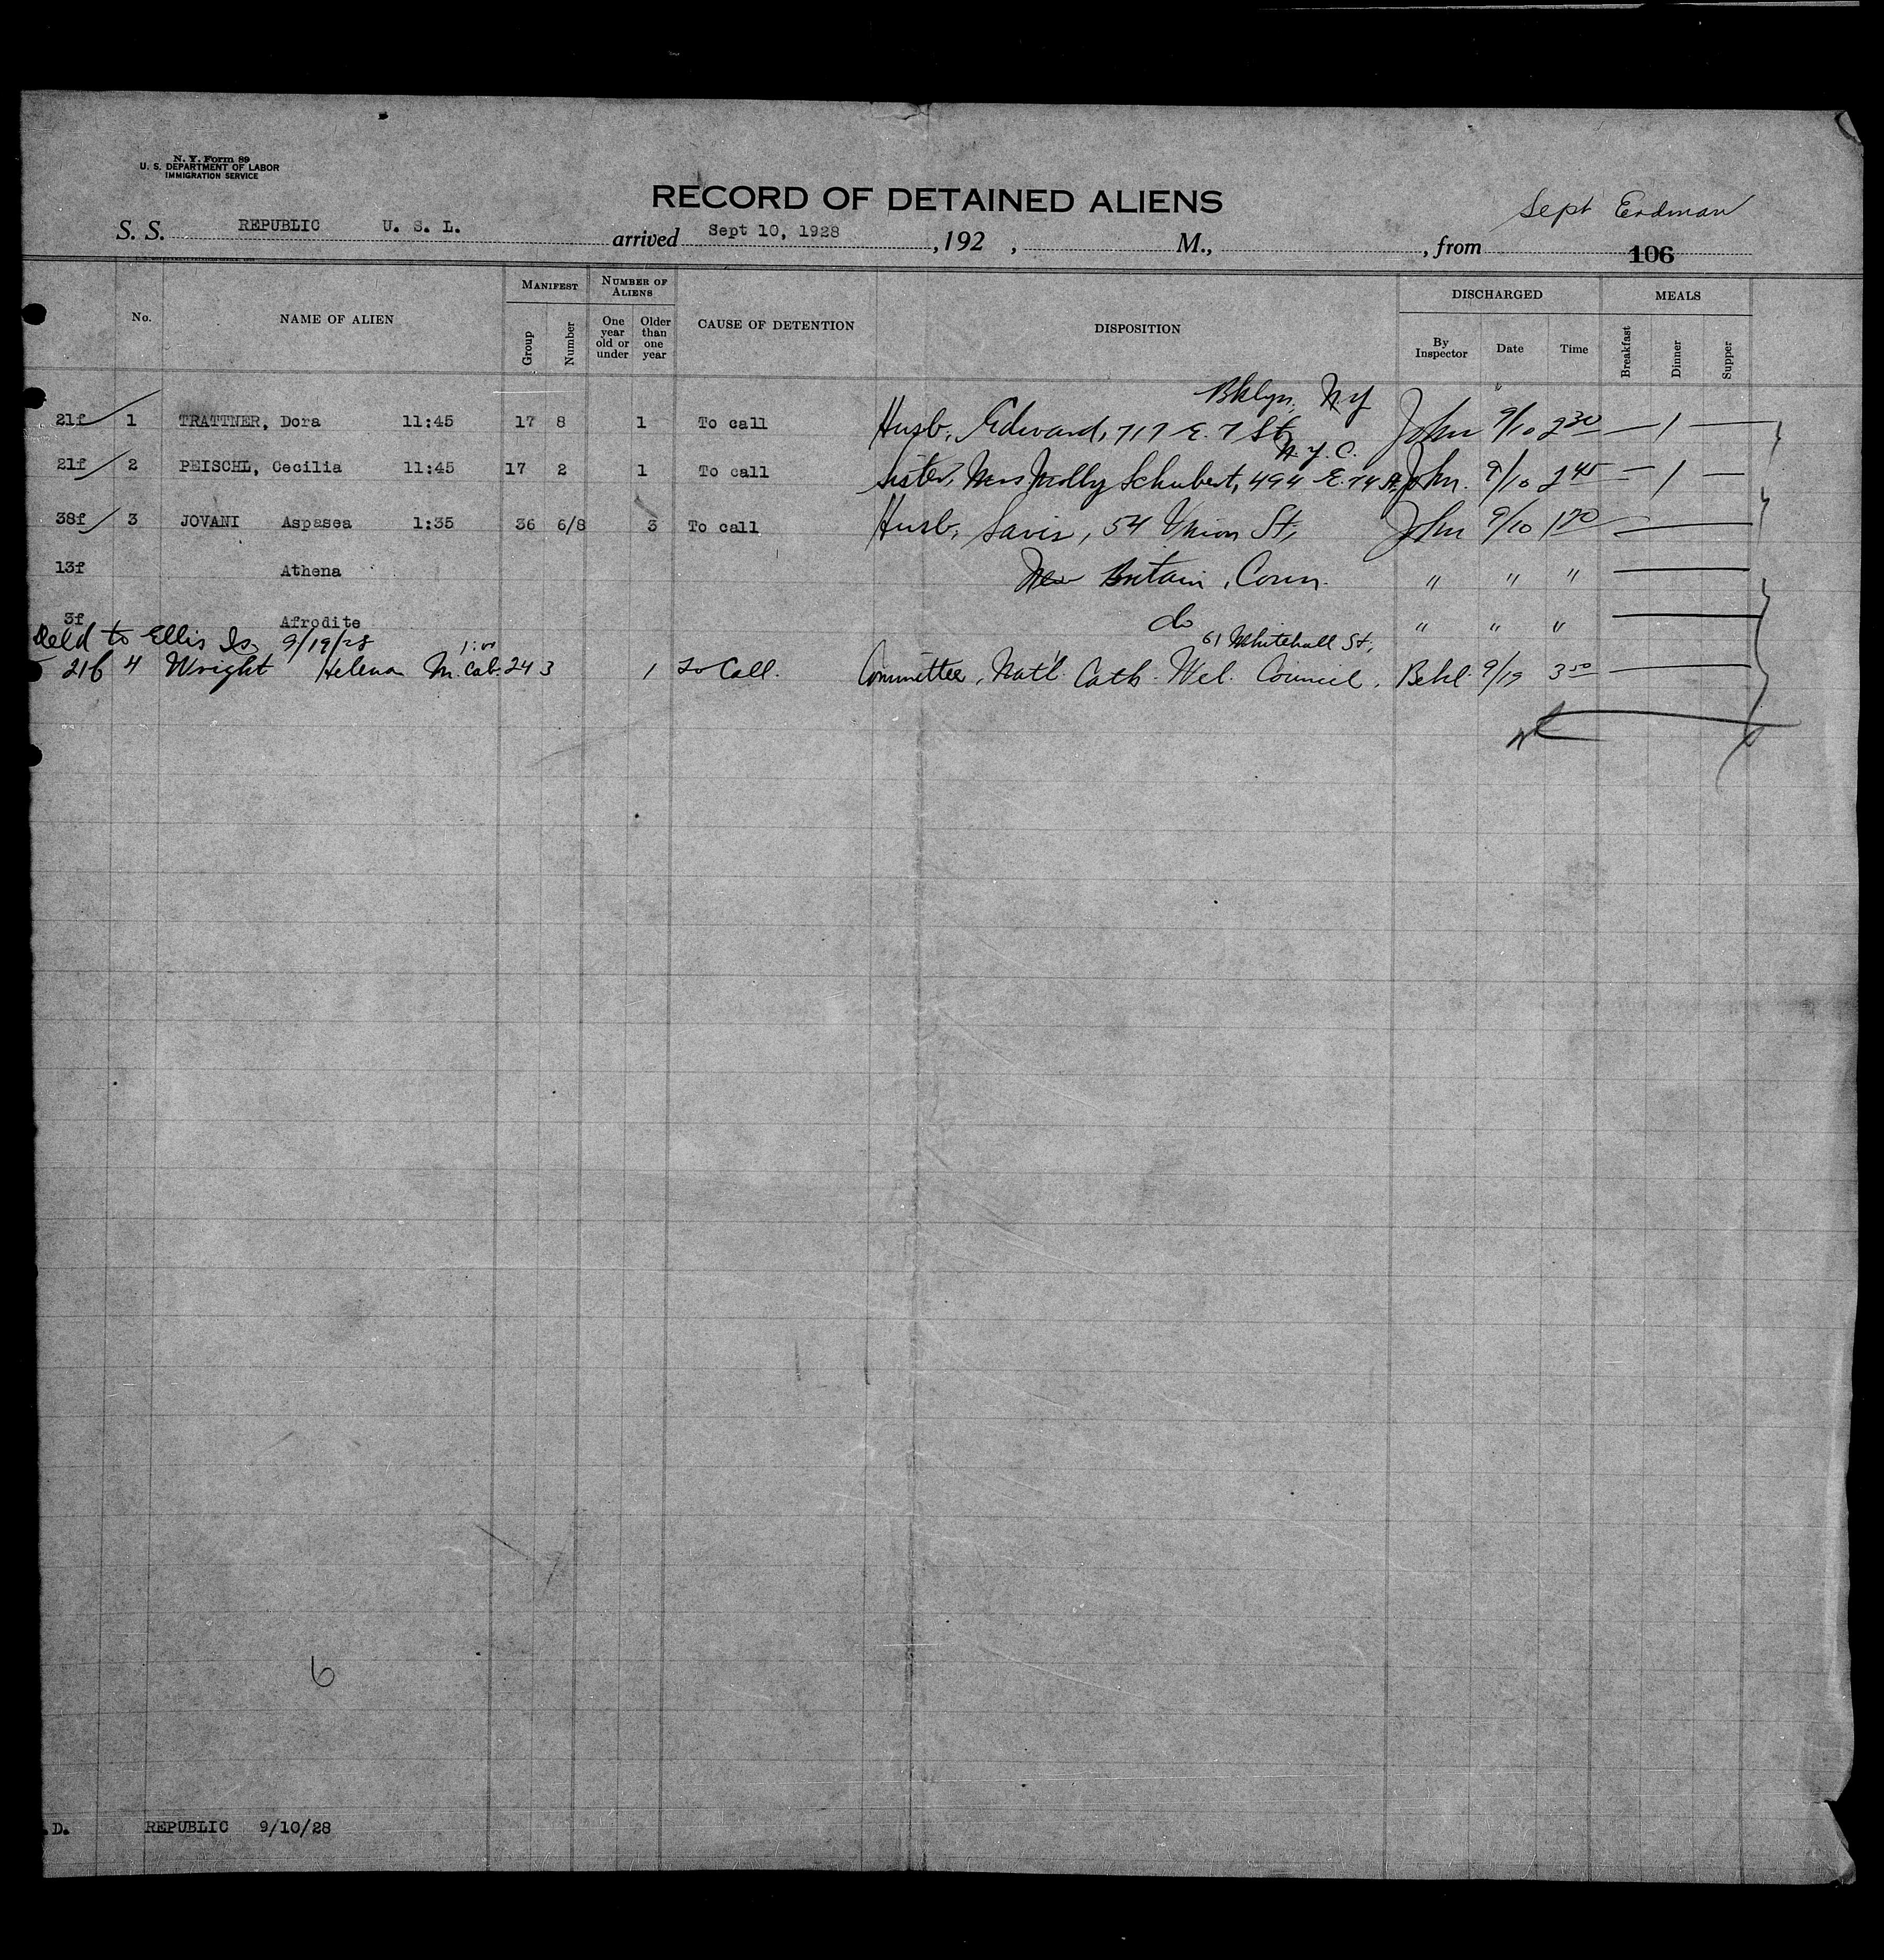 N. Y. Form 89
U. S. DEPARTMENT OF LABOR
IMMIGRATION SERVICE
RECORD OF DETAINED ALIENS
Sept Erdman
S. S. REPUBLIC U. S. L. arrived Sept 10, 1928, 192 , M., , from 106
No. NAME OF ALIEN MANIFEST Group Number NUMBER OF ALIENS One year old or under Older than one year CAUSE OF DETENTION DISPOSITION DISCHARGED By Inspector Date Time MEALS Breakfast Dinner Supper
Bklyn, N.Y
21f 1 TRATTNER, Dora 11:45 17 8 1 To call Husb, Edward, 717 E. 7 St, John 9/10 2 30 — 1 —
N.Y.C.
21f 2 PEISCHL, Cecilia 11:45 17 2 1 To call Sister, Mrs Molly Schubert, 494 E. 74 St. John. 9/10 2 45 — 1 —
38f 3 JOVANI Aspasea 1:35 36 6/8 3 To call Husb, Savis, 54 Union St, John 9/10 1 20 —
13f Athena New Britain, Conn. " " " —
3f Afrodite do " " " —
Deld to Ellis Is. 9/19/28 61 Whitehall St,
21f 4 Wright Helena M. Cab. 24 3 1 To Call. Committee, Nat'l. Cath. Wel. Council, Behl. 9/19 3 50 —
6
.D. REPUBLIC 9/10/28